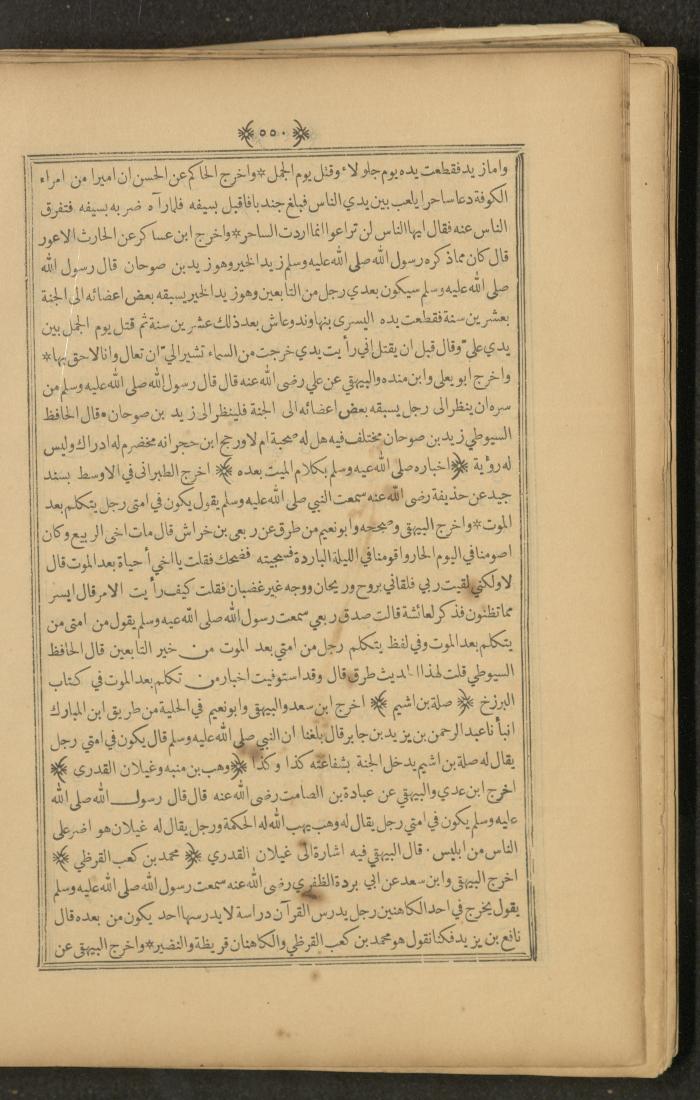 ﴿٥٥٠﴾
واما زيد فقطعت يده يوم جلولاء وقتل يوم الجمل * واخرج الحاكم عن الحسن ان اميرا من امراء
الكوفة دعا ساحرا يلعب بين يدي الناس فبلغ جندبا فاقبل بسيفه فلما رآه ضربه بسيفه فتفرق
الناس عنه فقال ايها الناس لن تراعوا انما اردت الساحر * واخرج ابن عساكر عن الحارث الاعور
قال كان مما ذكره رسول الله صلى الله عليه وسلم زيد الخير وهو زيد بن صوحان قال رسول الله
صلى الله عليه وسلم سيكون بعدي رجل من التابعين وهو زيد الخير يسبقه بعض اعضائه الى الجنة
بعشرين سنة فقطعت يده اليسرى بنهاوند وعاش بعد ذلك عشرين سنة ثم قتل يوم الجمل بين
يدي عليّ وقال قبل ان يقتل اني رأيت يدي خرجت من السماء تشير اليّ ان تعال وانا لاحق بها *
واخرج ابو يعلى وابن منده والبيهقي عن علي رضى الله عنه قال قال رسول الله صلى الله عليه وسلم من
سره ان ينظر الى رجل يسبقه بعض اعضائه الى الجنة فلينظر الى زيد بن صوحان * قال الحافظ
السيوطي زيد بن صوحان مختلف فيه هل له صحبة ام لا ورجح ابن حجر انه مخضرم له ادراك وليس
له رؤية ﴿ اخباره صلى الله عليه وسلم بكلام الميت بعده ﴾ اخرج الطبراني في الاوسط بسند
جيد عن حذيفة رضى الله عنه سمعت النبي صلى الله عليه وسلم يقول يكون في امتى رجل يتكلم بعد
الموت * واخرج البيهقي وصححه وابو نعيم من طرق عن ربعى بن خراش قال مات اخى الربيع وكان
اصومنا في اليوم الحار واقومنا في الليلة الباردة فسجيته فضحك فقلت يا اخي أحياة بعد الموت قال
لا ولكني لقيت ربي فلقاني بروح وريحان ووجه غير غضبان فقلت كيف رأيت الامر قال ايسر
مما تظنون فذكر لعائشة قالت صدق ربعي سمعت رسول الله صلى الله عليه وسلم يقول من امتى من
يتكلم بعد الموت وفي لفظ يتكلم رجل من امتي بعد الموت من خير التابعين قال الحافظ
السيوطي قلت لهذا الحديث طرق قال وقد استوفيت اخبار من تكلم بعد الموت في كتاب
البرزخ ﴿ صلة بن اشيم ﴾ اخرج ابن سعد والبيهقي وابو نعيم في الحلية من طريق ابن المبارك
انبأنا عبد الرحمن بن يزيد بن جابر قال بلغنا ان النبي صلى الله عليه وسلم قال يكون في امتي رجل
يقال له صلة بن اشيم يدخل الجنة بشفاعته كذا وكذا ﴿ وهب بن منبه وغيلان القدرى ﴾
اخرج ابن عدي والبيهقي عن عبادة بن الصامت رضى الله عنه قال قال رسول الله صلى الله
عليه وسلم يكون في امتى رجل يقال له وهب يهب الله له الحكمة ورجل يقال له غيلان هو اضر على
الناس من ابليس ٠ قال البيهقي فيه اشارة الى غيلان القدري ﴿ محمد بن كعب القرظي ﴾
اخرج البيهقي وابن سعد عن ابي بردة الظفري رضى الله عنه سمعت رسول الله صلى الله عليه وسلم
يقول يخرج في احد الكاهنين رجل يدرس القرآن دراسة لا يدرسها احد يكون من بعده قال
نافع بن يزيد فكنا نقول هو محمد بن كعب القرظي والكاهنان قريظة والنضير * واخرج البيهقي عن